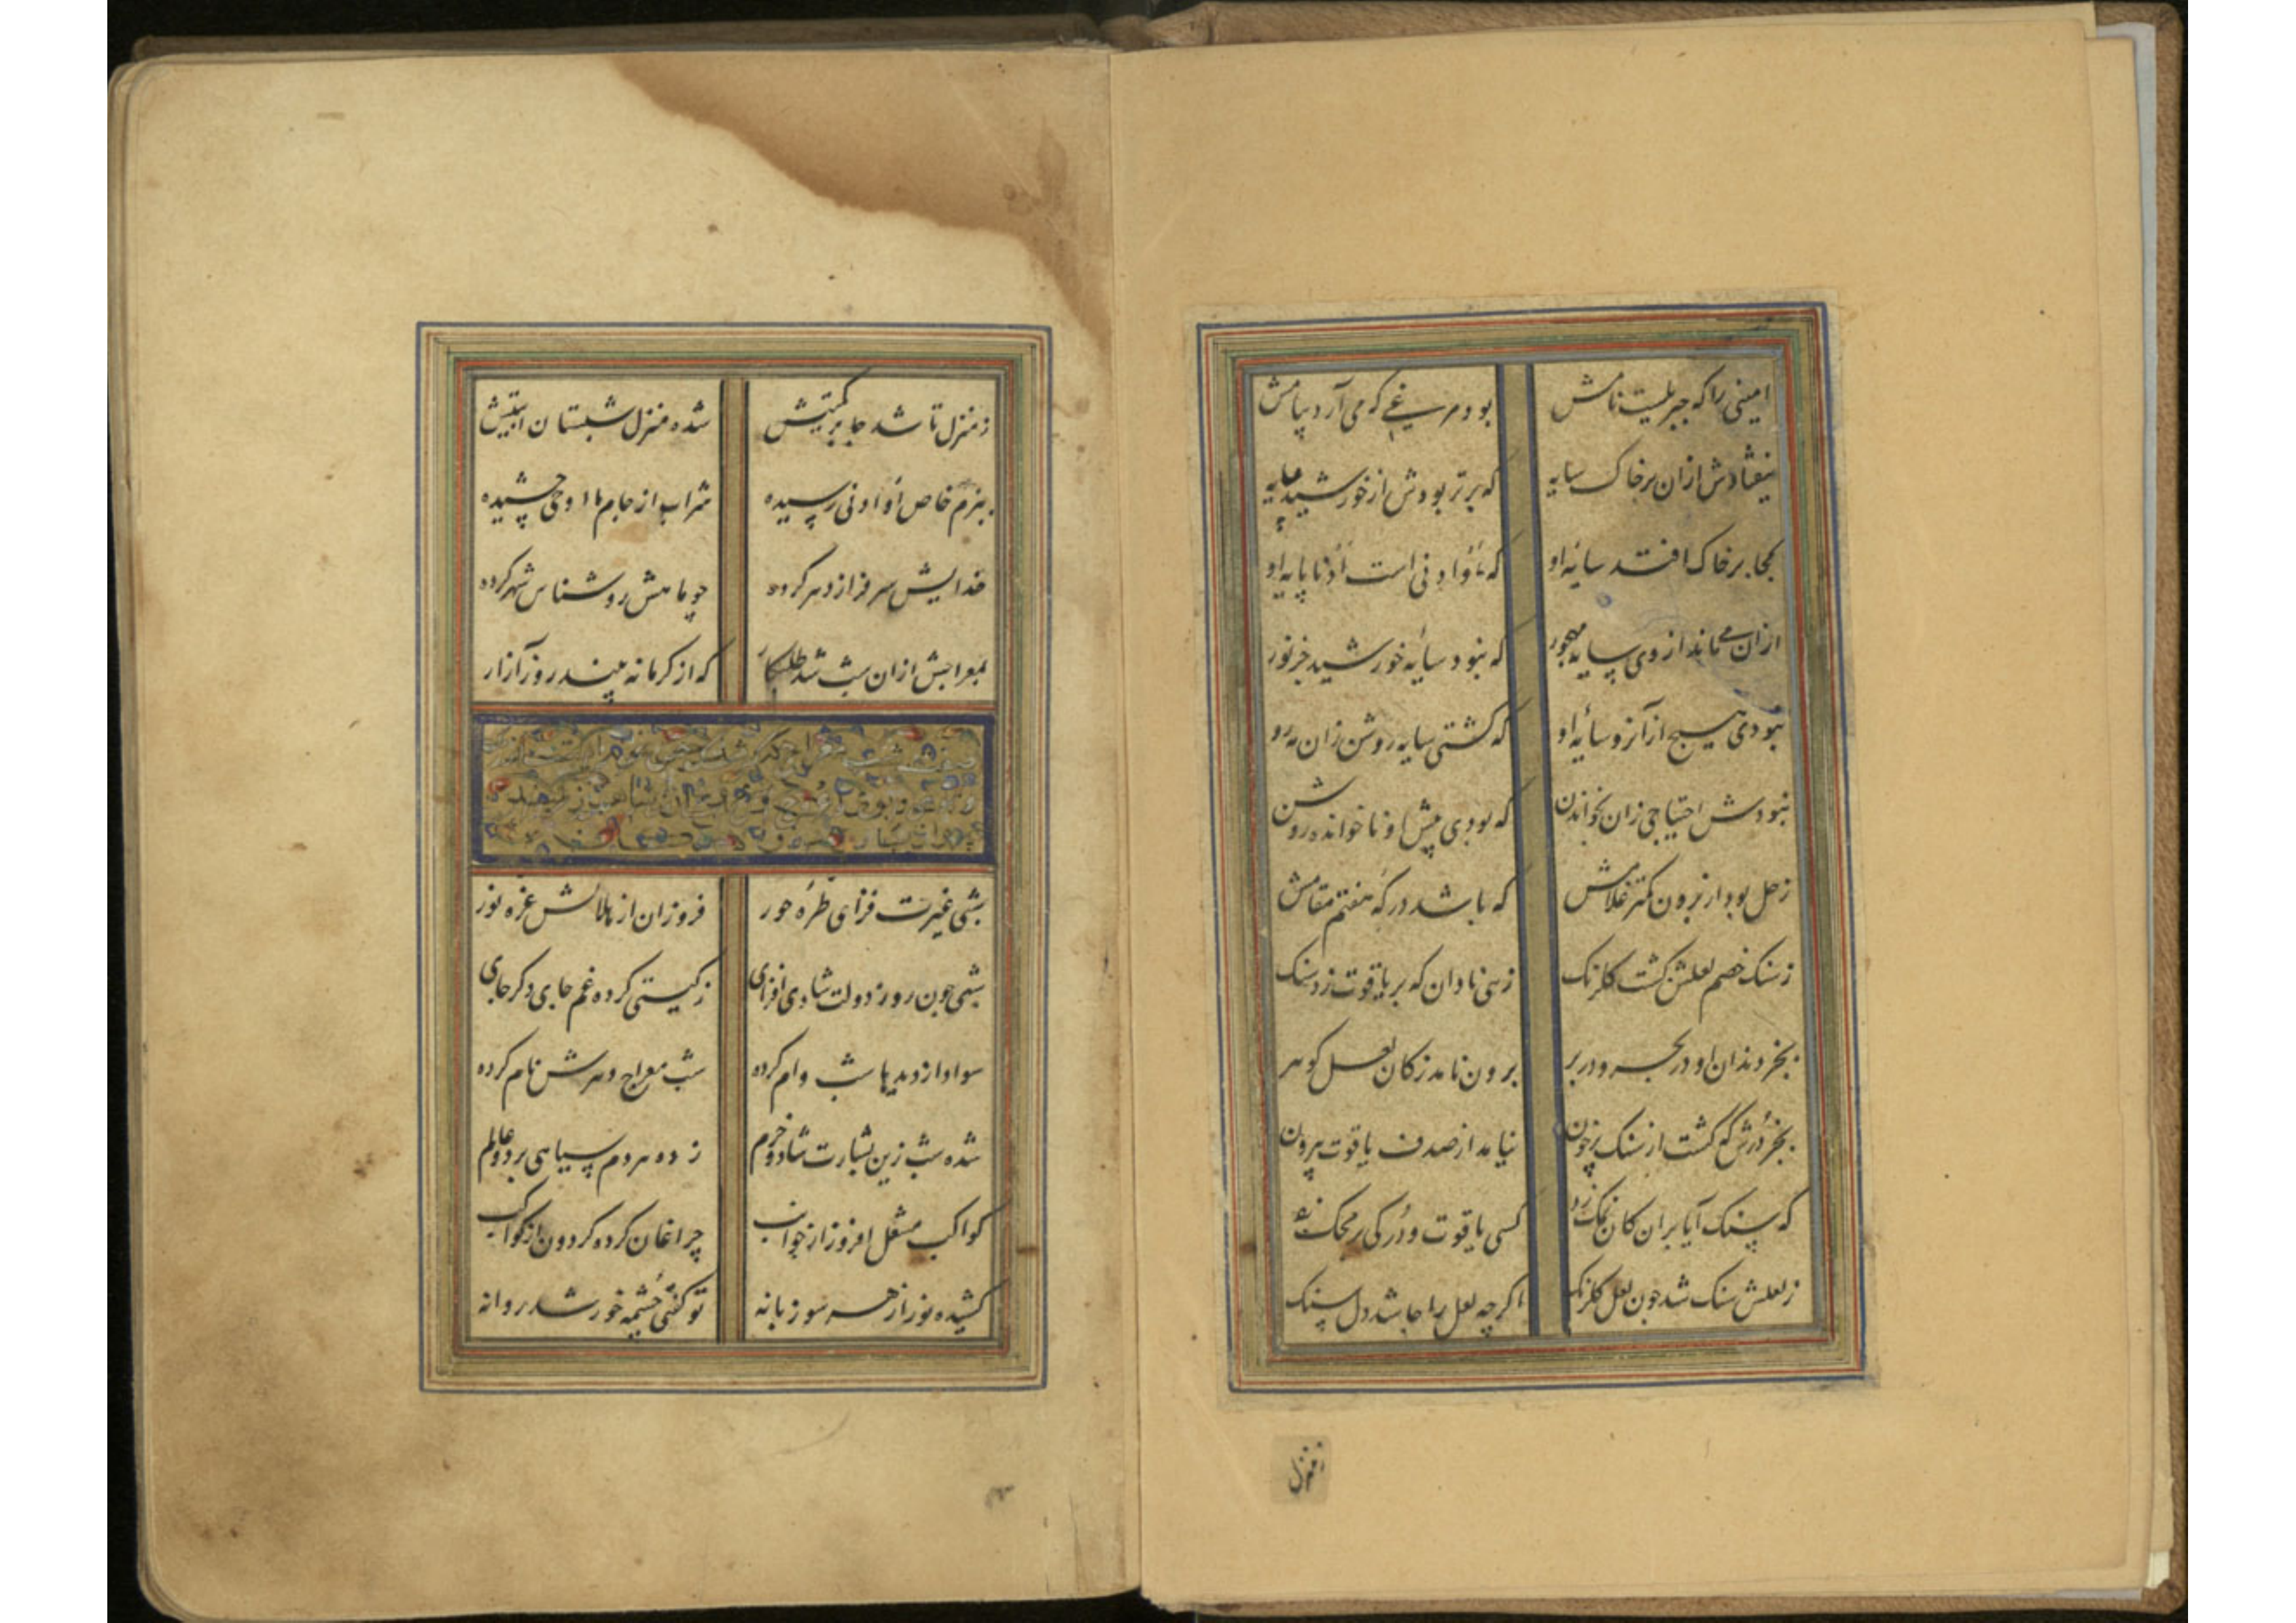 امینی را که جبریلیست نامش بود مرغی که می آرد پیامش
نیفتادش ازان برخاک سایه که برتر بودش از خورشید پایه
کجا برخاک افتد سایهٔ او که او ادنی است ادنا پایهٔ او
ازان می ماند از وی سایه مهجور که نبود سایهٔ خورشید جز نور
نبودی هیچ از آنرو سایهٔ او که گشتی سایه روشن زان مه رو
نبودش احتیاجی زان بخواندن که بودی پیش او ناخوانده روشن
زحل بود از برون کمتر غلامش که باشد درگه هفتم مقامش
ز سنک خصم لعلش کشت کلرنک زهی نادان که بر یاقوت زد سنک
بجز دندان او در بحر و در بر برون نامد ز کان لعل گوهر
بجز درش که کشت از سنک پرخون نیامد از صدف یاقوت بیرون
که سنک آیا بران کان نمک زد کسی یاقوت و در کی بر محک زد
ز لعلش سنک شد چون لعل کلرنک اکرچه لعل را جا شد دل سنک
ز منزل
ز منزل تا شد جا بر شده منزل شبستان
ببزم خاص او ادنی رسیده شراب از جام ما اوحی چشیده
خدایش سرفراز دهر کرده چو ماهش روشناس شهر کرده
بمعراجش ازان شب شد طلبکار که از کرما نه بیند روز آزار
شبی غیرت فزای طرهٔ حور فروزان از هلالش غره نور
شبی چون روز دولت شادی افزای ز کیتی کرده غم جای دکر جای
سواد از دیدها شب وام کرده شب معراج دهرش نام کرده
شده شب زین بشارت شاد و خرم زده مردم سیاهی بر دو عالم
کواکب مشعل افروز از جوانب چراغان کرده کردون از کواکب
کشیده نور از هر سو زبانه تو کفتی چشمه خورشد روانه